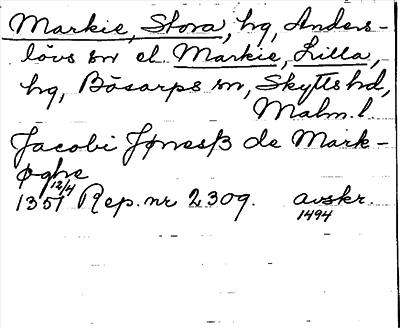 Markie, Stora, hg, Anders-
lövs sn el. Markie, Lilla,
hg, Bösarps sn, Skytts hd,
Malm. l.
Jacobi Jønesß de Mark-
øghe
12/4
1351 Rep. nr 2309. avskr.
1494